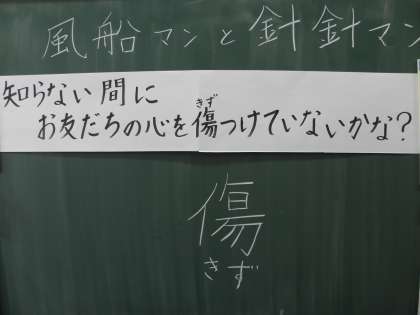 風船マンと針針マン
知らない間に
きず
お友だちの心を傷つけていないかな?
傷
きず